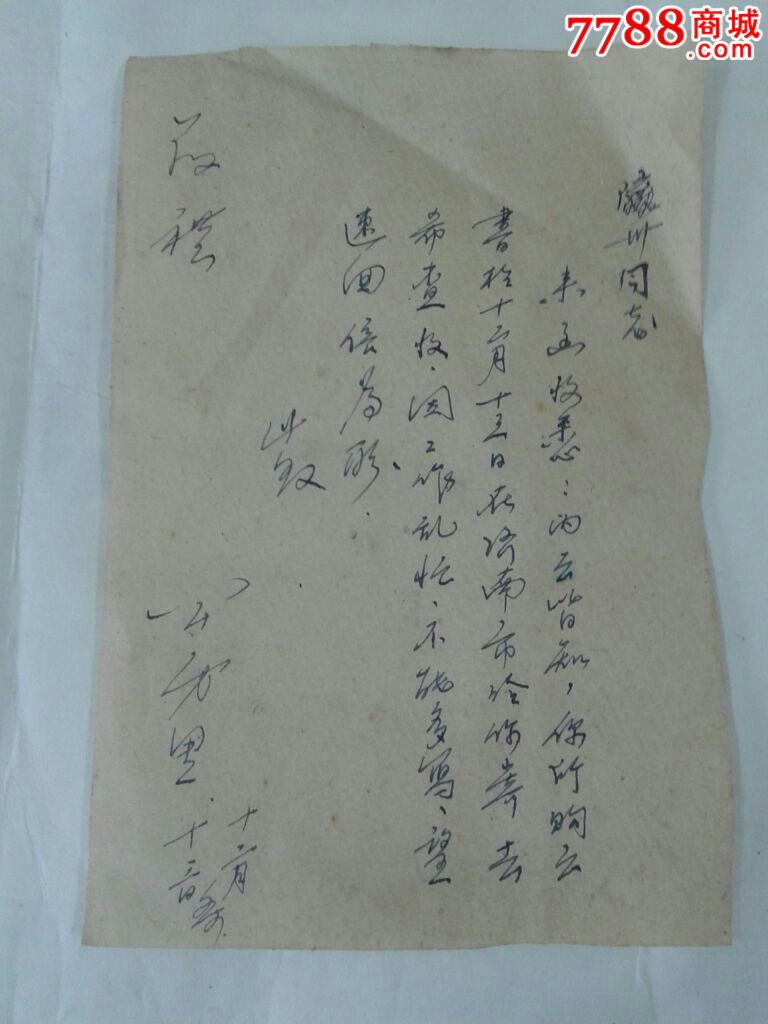 7788商城
.com
同志
来函收悉：内云皆知，你所购云
书于十二月十三日在济南市给你寄去
希查收、因工作乱忙、不能多写、望
速回信为盼、
此致
敬礼
十二月